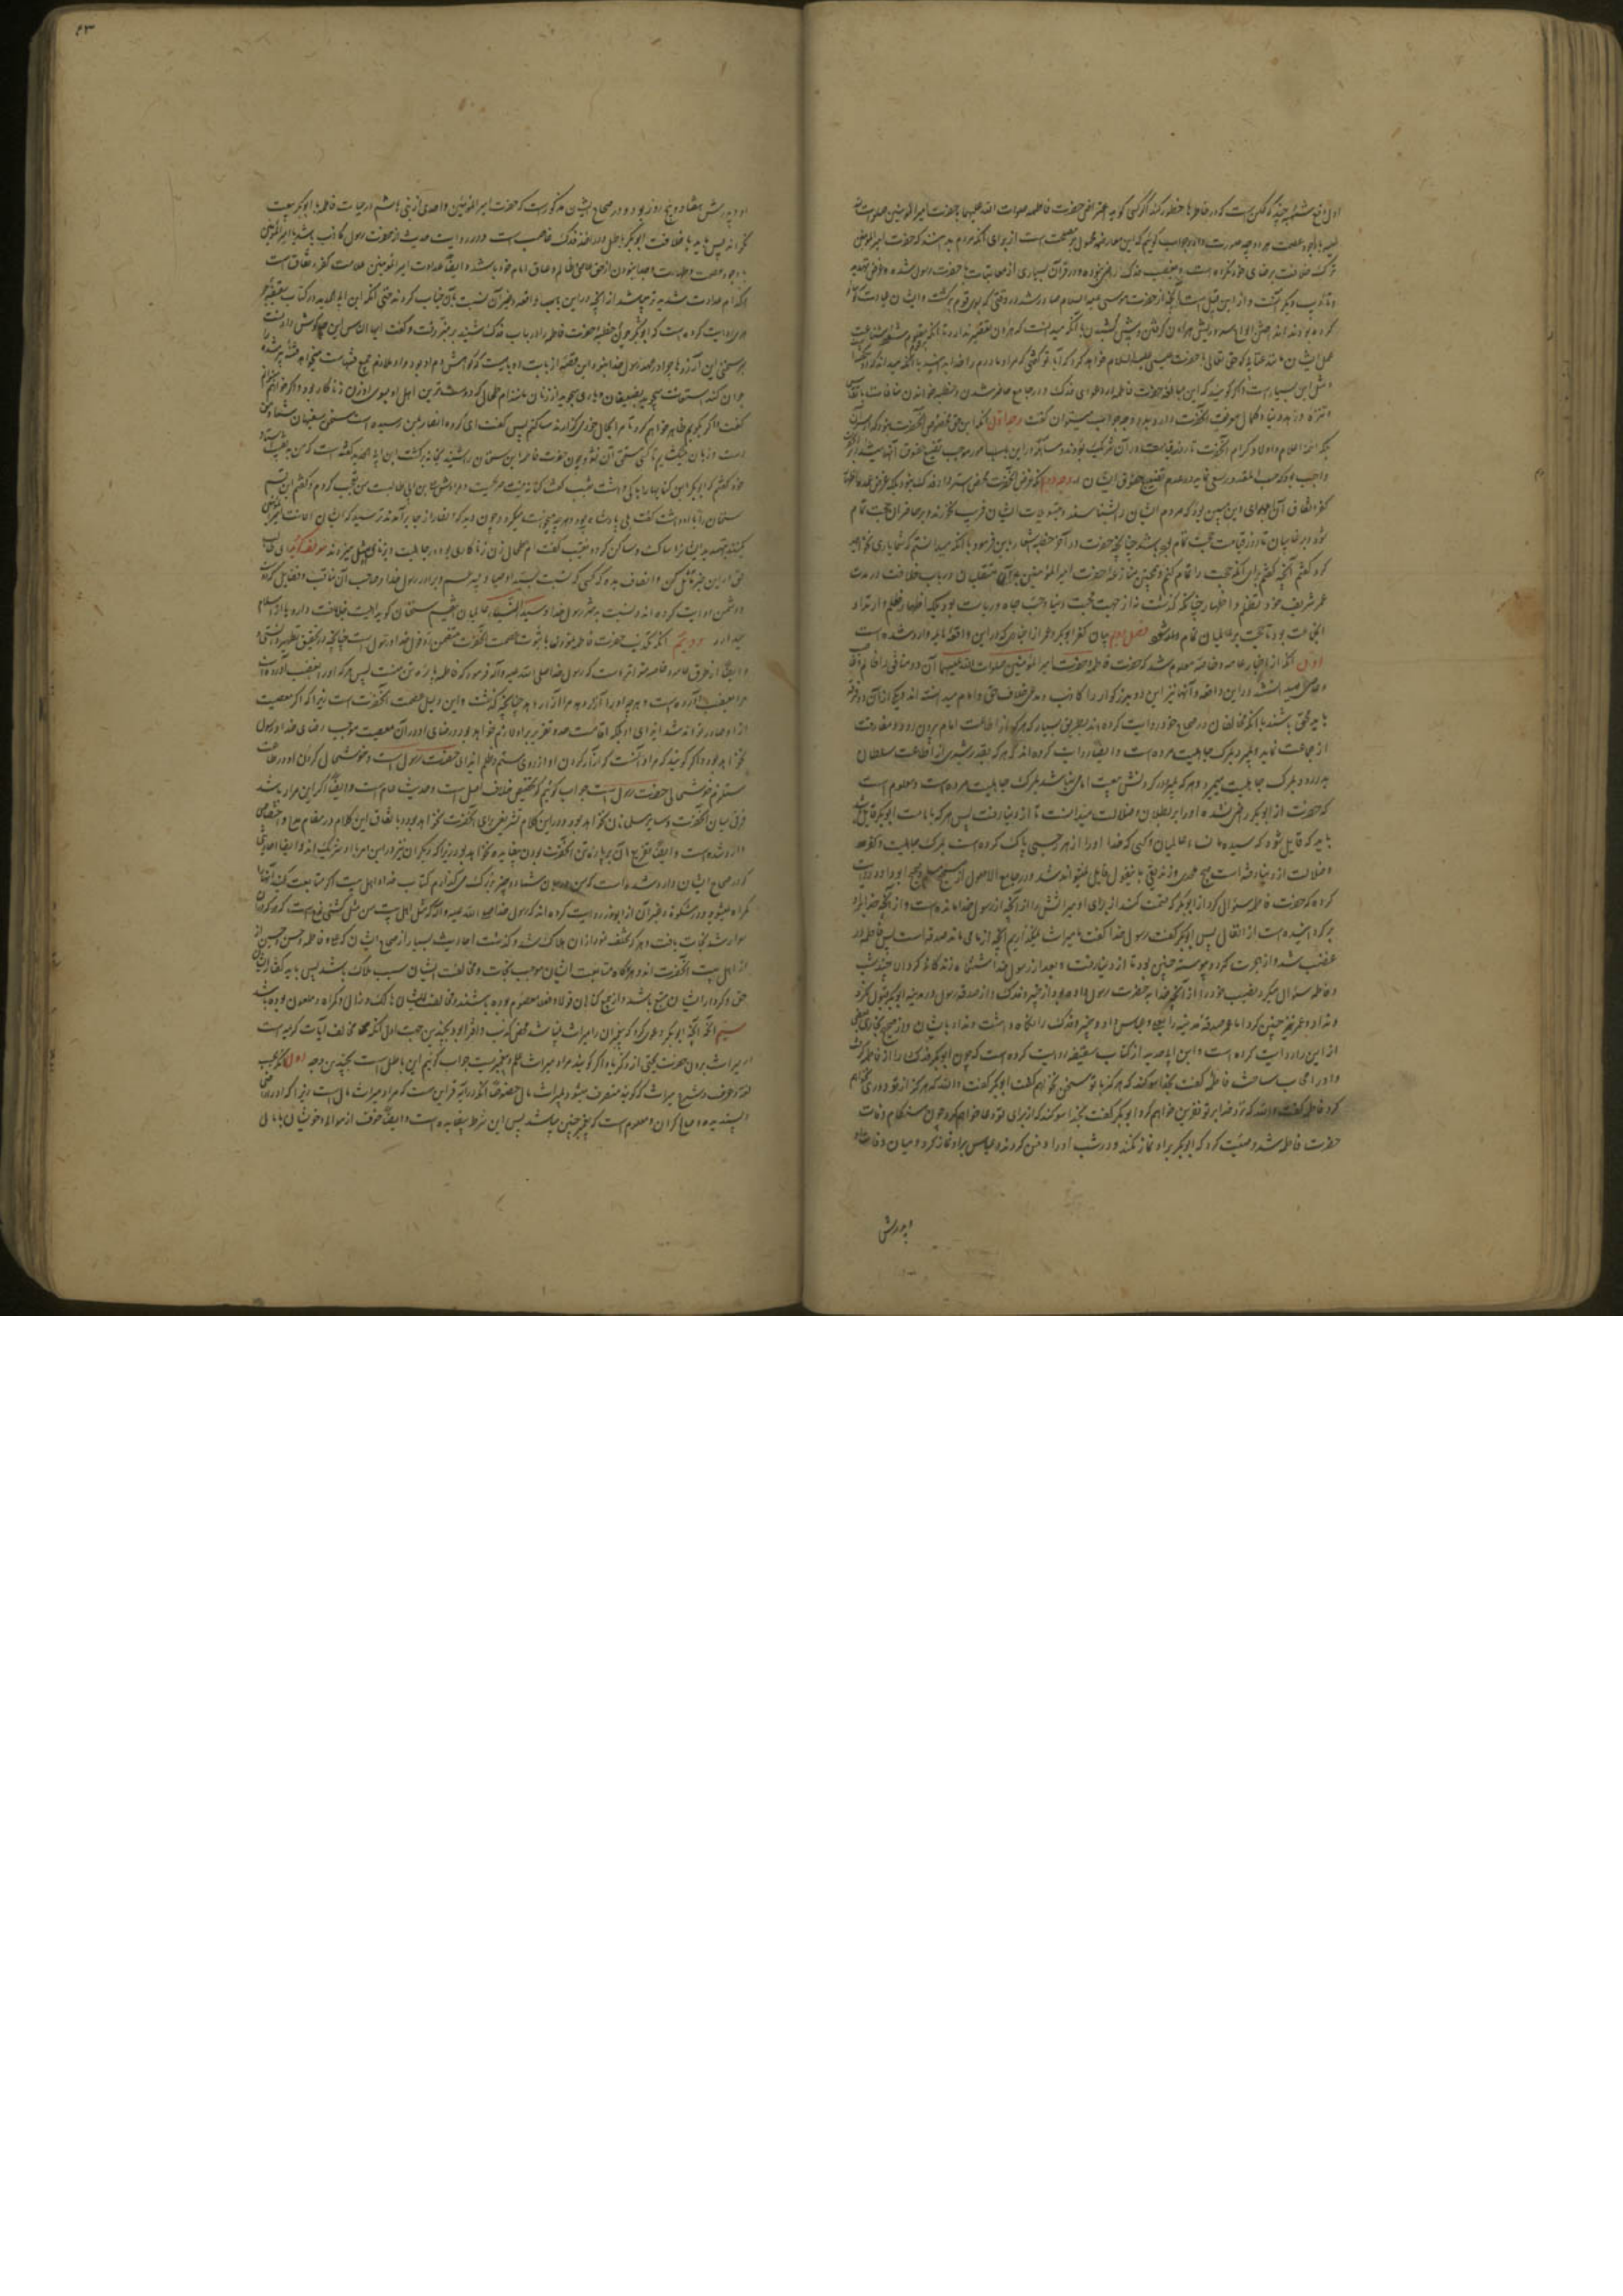 اول دفع شبهه چند که ممکن است که در خاطرها خطور کند اگر کسی گوید اعتراض حضرت فاطمه صلوات الله علیها با حضرت امیر المؤمنین صلوات الله
علیه با وجود عصمت هر دو چه صورت دارد جواب گوئیم که این معارضه محمول بر مصلحت است از برای آنکه مردم بدانند که حضرت امیر المؤمنین
ترک خلافت برضای خود نکرده است و بغصب فدک راضی نبوده و در قرآن بسیاری از معاتبات با حضرت رسول شده و غرض تهدید
و تأدیب دیگر آنست و از این قبیل است آنچه از حضرت موسی علیه السلام صادر شد در وقتی که بسوی قوم برگشت و ایشان عبادت گوساله
کرده بودند از انداختن الواح و سر و ریش هارون گرفتن و پیش کشیدن با آنکه میدانست که هارون تقصیر ندارد تا آنکه بر قوم
عمل ایشان مانند عتابی که حق تعالی با حضرت عیسی علیه السلام خواهد کرد که آیا تو گفتی که مرا و مادرم را خدا بدانید با آنکه میداند که او نگفته
و مثل این بسیار است و اگر گویند که این مبالغه حضرت فاطمه در دعوای فدک و در مجامع حاضر شدن و خطبه خواندن منافات با تقدس
و تنزه و زهد دنیا و کمال معرفت آنحضرت دارد بدو وجه جواب میتوان گفت وجه اول آنکه این حق مخصوص آنحضرت نبود که
بلکه ائمه اعلام و اولاد کرام آنحضرت تا روز قیامت در آن شریک بودند و مساهله در این باب موجب تضییع حقوق آنها میشد
واجب بود که حسب المقدور سعی نماید در عدم تضییع حقوق ایشان وجه دوم آنکه غرض آنحضرت محض استرداد فدک نبود بلکه غرض عمده اظهار
کفر و نفاق آن
شود و بر غاصبان تا روز قیامت حجت تمام بوده باشد چنانچه حضرت در آخر خطبه اشعار باین فرمود با آنکه میدانستم که شما یاری نخواهید
کرد گفتم آنچه گفتم برای آنکه حجت را تمام کنم و همچنین منازعه حضرت امیر المؤمنین با آن متقلبان در باب خلافت در مدت
عمر شریف خود و تظلم و اظهار چنانکه گذشت نه از جهت محبت دنیا و حب جاه و ریاست بود بلکه اظهار ظلم و ارتداد
آنجماعت بود تا حجت بر عالمیان تمام و فصل دوم بیان کفر ابوبکر و عمر از اخباری که در این واقعه هایله وارد شده است
اول آنکه از اخبار عامه و خاصه معلوم شد که حضرت فاطمه و حضرت امیر المؤمنین صلوات الله علیهما آن دو منافق را ظالم و
و عاصی میدانستند در این واقعه و آنها نیز این دو بزرگوار را کاذب و مدعی خلاف حق و امام میدانسته اند و یکی از آن دو فرقه
باید محق باشند با آنکه مخالفان در صحاح خود روایت کرده اند بطریق بسیار که هر که از اطاعت امام بیرون رود و مفارقت
از جماعت نماید و بمیرد بمرگ جاهلیت مرده است و ایضا روایت کرده اند که هر که بقدر شبری از اطاعت سلطان
بدر رود بمرگ جاهلیت میمیرد و هر که بمیرد و در گردنش بیعت امامی نباشد بمرگ جاهلیت مرده است و معلوم است
که حضرت از ابوبکر راضی نشد و او را بر بطلان و ضلالت میدانست تا از دنیا رفت پس هر که بامامت ابوبکر قایل شد
باید که قایل شود که سیده نساء عالمیان و کسی که خدا او را از هر رجسی پاک کرده است بمرگ جاهلیت و کفر
و ضلالت از دنیا رفته است و هیچ ملحدی و زندیقی باین قول قایل نمیتواند شد و در جامع الاصول از صحیح مسلم و صحیح ابو داود روایت
کرده که حضرت فاطمه سؤال کرد از ابوبکر که قسمت کند از برای او میراثش را از آنچه از رسول خدا مانده است و از آنچه خدا باو
برگردانیده است از انفال پس ابوبکر گفت رسول خدا گفت ما میراث نمیگذاریم آنچه از ما می ماند صدقه است پس فاطمه در
غضب شد و از او هجرت کرد و پیوسته چنین بود تا از دنیا رفت و بعد از رسول خدا شش ماه زندگانی کرد الا چند شب
و فاطمه سؤال میکرد نصیب خود را از آنچه خدا به حضرت رسول داده بود از خیبر و فدک و از صدقه رسول در مدینه ابوبکر قبول نکرد
و نداد و عمر نیز چنین کرد اما عمر صدقه مدینه را بعلی و عباس داد و خیبر و فدک را نگاه داشت و نداد بایشان و در صحیح بخاری
از این را روایت کرده است و ابن ابی الحدید از کتاب سقیفه روایت کرده است که چون ابوبکر فدک را از فاطمه گرفت
و او را مجاب ساخت فاطمه گفت بخدا سوگند که هرگز با تو سخن نخواهم گفت ابوبکر گفت والله که هرگز از تو دوری نخواهم
کرد فاطمه گفت والله که نزد خدا بر تو نفرین خواهم کرد ابوبکر گفت بخدا سوگند که از برای تو دعا خواهم کرد و چون هنگام وفات
حضرت فاطمه شد وصیت کرد که ابوبکر بر او نماز نکند و در شب او را دفن کردند و عباس بر او نماز کرد و میان وفات او
و پدرش
۴۳
و پدرش هفتاد و پنج روز بود و در صحاح ایشان مذکور است که حضرت امیر المؤمنین و احدی از بنی هاشم در حیات فاطمه با ابوبکر بیعت
نکردند پس باید یا خلافت ابوبکر باطل و در اخذ فدک غاصب است و در روایت حدیث از حضرت رسول کاذب باشد یا امیر المؤمنین
با وجود عصمت و طهارت و جدا نبودن از حق عاصی و ظالم و عاق امام خود باشد و ایضا عداوت امیر المؤمنین علامت کفر و نفاق است
و کدام عداوت شدیدتر میباشد از آنچه در این باب واقعه و غیر آن نسبت بآن جناب کردند حتی آنکه ابن ابی الحدید در کتاب سقیفه
جوهری روایت کرده است که ابوبکر چون خطبه حضرت فاطمه را در باب فدک شنید بر منبر رفت و گفت ایها الناس این چه گوش دادنست
بر سخنی این آرزوها چرا در عهد رسول خدا نبود این قصه از بابت روباهیست که گواهش دم او بود و او ملازم جمیع فتنهاست میخواهد فتنه پیر شده را
جوان کند استعانت میجوید بضعیفان و یاری میجوید از زنان مانند ام طحال که دوسترین اهل او بسوی او زن زناکار بود و اگر خواهم
گفت و اگر بگویم ظاهر خواهم کرد تا مرا بحال خود میگذارند ساکتم پس گفت ای گروه انصار بمن رسیده است سخن سفیهان شما و من
دست و زبان نمیگشایم تا کسی مستحق آن نشود و چون حضرت فاطمه این سخنان را شنید بخانه برگشت ابن ابی الحدید گفته است که من به نقیب استاد
خود گفتم که ابوبکر این کنایها را با کی داشت نقیب گفت کنایه نیست صریحست و مرادش علی بن ابی طالبست من تعجب کردم و گفتم این قسم
سخنان را باو داشت گفت بلی پادشاه بود و هر چه میخواست میکرد و چون دید که انصار از جا برآمدند ترسید که ایشان اعانت امیر المؤمنین
بکنند تهدید ایشان را ساکت و ساکن کرد و نقیب گفت ام طحال زن زناکاری بود در جاهلیت و زنا را مثل میزدند مؤلف گوید ای طالب
حق در این خبر تأمل کن و انصاف بده که کسی که نسبت بسید اوصیا و پسر عم و برادر رسول خدا و صاحب آن مناقب و فضایل که دوست
و دشمن روایت کرده اند و نسبت بدختر رسول خدا و سیدة النساء عالمیان این قسم سخنان گوید اهلیت خلافت دارد یا از اسلام
بهره دارد دویم آنکه تکذیب حضرت فاطمه نمودن با ثبوت عصمت آنحضرت متضمن رد قول خدا و رسول است چنانچه در تحقیق تطهیر دانستی
و ایضا از طرق عامه و خاصه متواتر است که رسول خدا صلی الله علیه و آله فرمود که فاطمه پاره تن منست پس هر که او را بغضب آورد
مرا بغضب آورده است و هر که او را آزار دهد مرا آزار دهد چنانچه گذشت و این دلیل عصمت آنحضرت است زیرا که اگر معصیت
از او صادر تواند شد ایذای او بلکه اقامت حد و تعزیر بر او لازم خواهد بود و رضای او در آن معصیت موجب رضای خدا و رسول
نخواهد بود و اگر گویند که مراد آنست که آزار کردن او از روی ستم و ظلم ایذای حضرت رسول است و خوشحال کردن او در طاعت
مستلزم خوشحالی حضرت رسول است جواب گوئیم که تخصیص خلاف اصل است و حدیث عام است و ایضا اگر این مراد باشد
فرق میان آنحضرت و سایر مسلمانان نخواهد بود و در این کلام تشریفی برای آنحضرت نخواهد بود و باتفاق این کلام در مقام مدح و اختصاص
وارد شده است و ایضا تفریع آن بر پاره تن آنحضرت بودن بیفایده خواهد بود زیرا که دیگران نیز در این امر با او شریک اند و ایضا احادیثی
که در صحاح ایشان وارد شده است که من در میان شما دو چیز بزرگ میگذارم کتاب خدا و اهل بیت اگر متابعت کنید آنها را
گمراه نمیشوید و در مشکوة و غیر آن از ابوذر روایت کرده اند که رسول خدا صلی الله علیه و آله گفت مثل اهل بیت من مثل کشتی نوح است که هر که در آن
سوار شد نجات یافت و هر که تخلف نمود از آن هلاک شد و گذشت احادیث بسیار از صحاح ایشان که علی و فاطمه و حسن و حسین از
از اهل بیت آنحضرت اند و هرگاه متابعت ایشان موجب نجات و مخالفت ایشان سبب هلاک باشد پس باید گفتار ایشان
حق و کردار ایشان متبع باشد و از جمیع گناهان قولا و فعلا معصوم بوده باشند و مخالف ایشان هالک و ضال و گمراه و ملعون بوده باشد
سیم آنکه آنچه ابوبکر دعوی کرد که پیغمبران را میراث نمیباشد محض کذب و افترا بود بچندین جهت اول آنکه مخالف آیات کریمه است
میراث بردن حضرت یحیی از زکریا و اگر گویند مراد میراث علم و پیغمبریست جواب گوئیم این باطل است بچندین وجه اول آنکه بحسب
لغت و عرف و شرع میراث که گویند منصرف میشود بمیراث مال خصوصا آنکه در آیه قراین هست که مراد میراث مال است زیرا که او را رضی
و پسندیده و صالح گردان و معلوم است که پیغمبر چنین میباشد پس این شرط بیفایده است و ایضا خوف از موالی و خویشان با مال